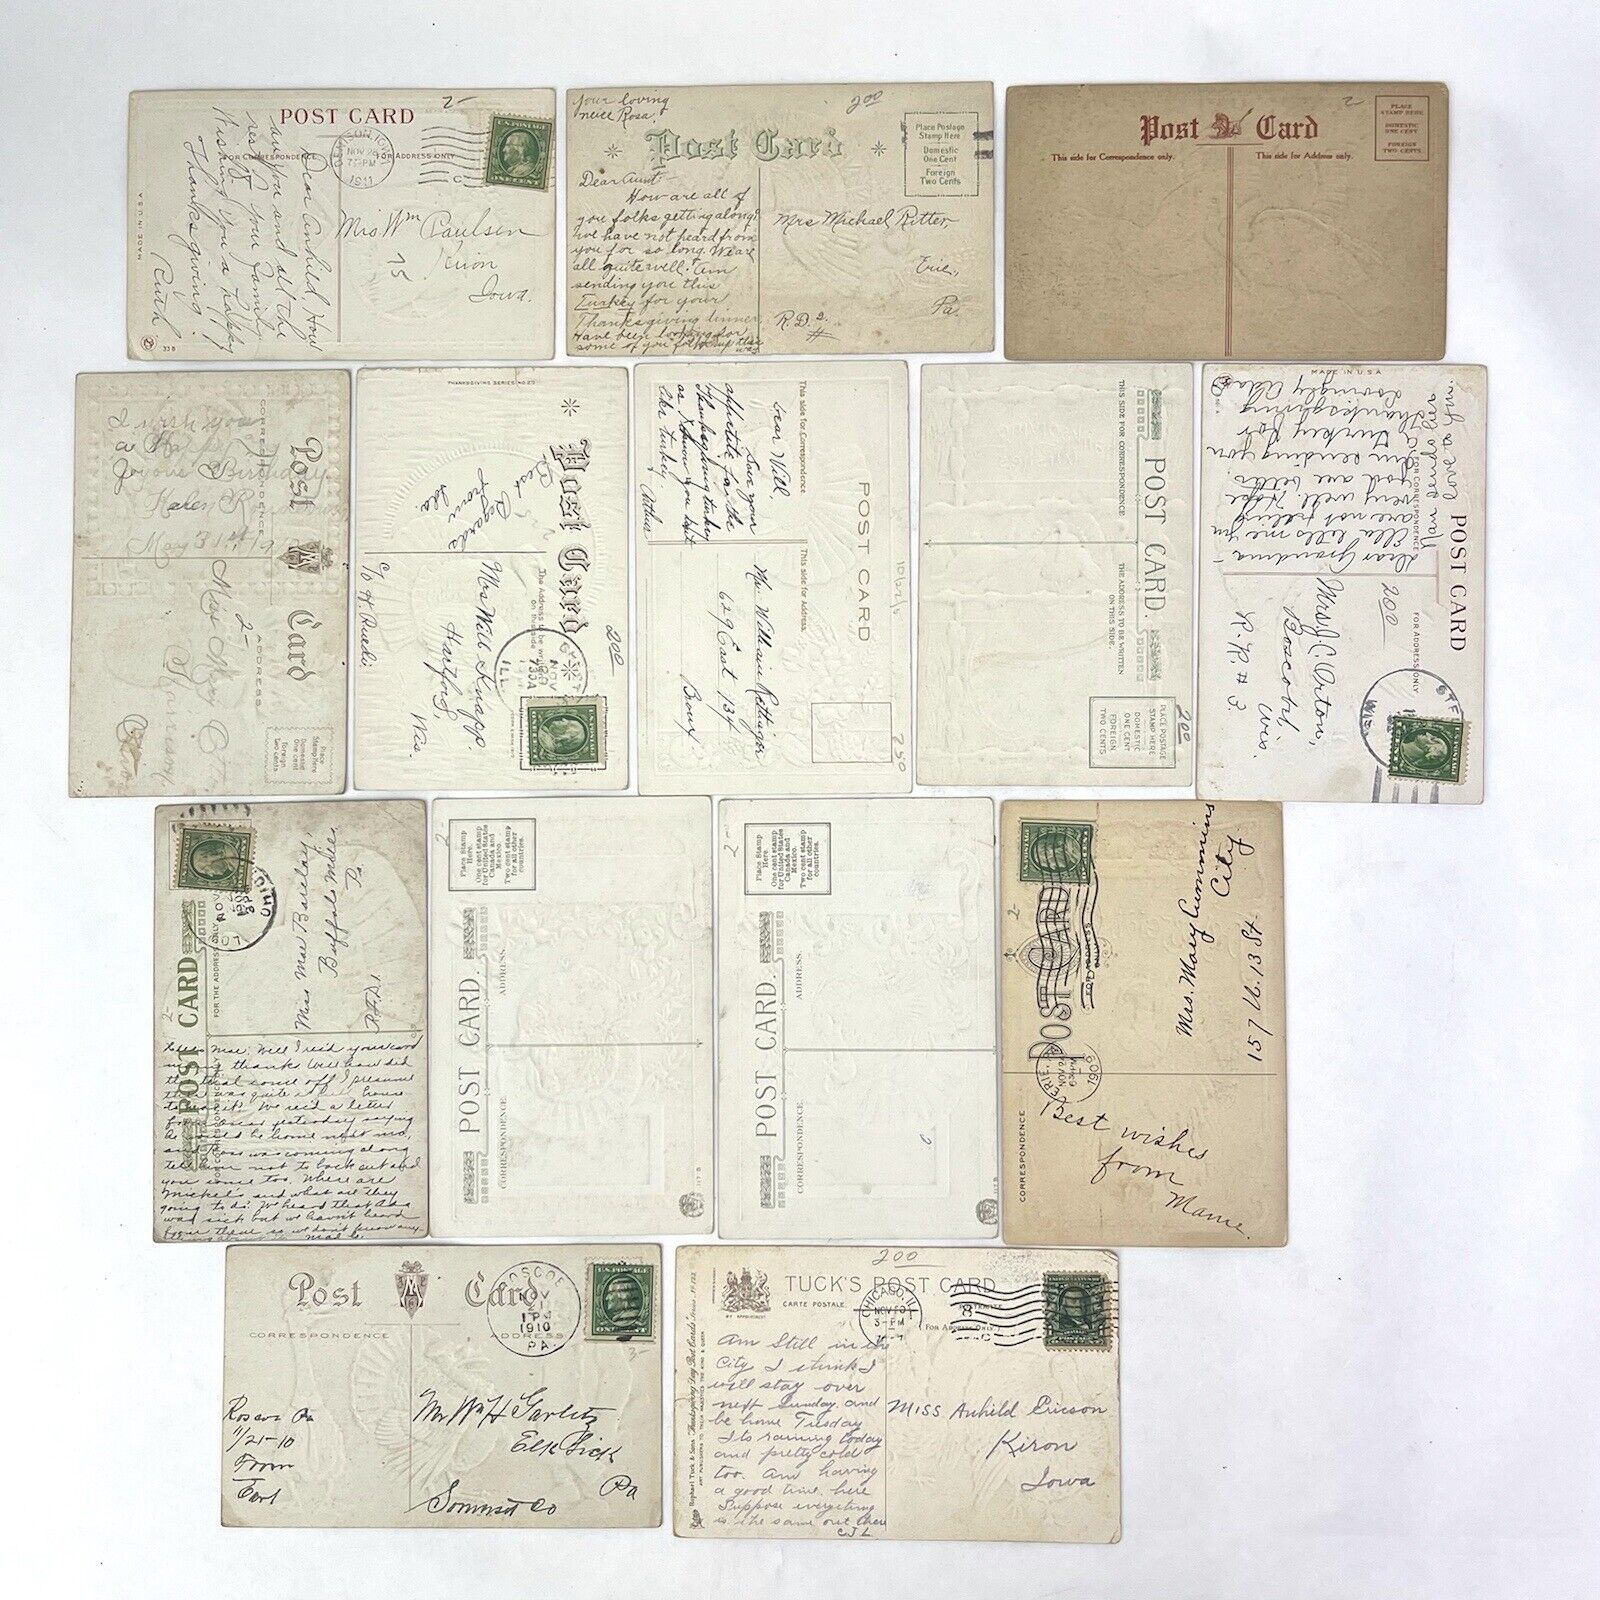 2-
POST CARD
FOR CORRESPONDENCE
FOR ADDRESS ONLY
NOV 28
7-PM
1911
U.S. POSTAGE
ONE CENT
MADE IN U.S.A.
33 B
Dear Anhild, How
are you and all the
rest of your family
Wishing you a happy
Thanksgiving.
Ruth
Mrs Wm Paulsen
Kiron
Iowa.
your loving
neice Rosa.
200
Post Card
Place Postage
Stamp Here
Domestic
One Cent
Foreign
Two Cents
Dear Aunt:-
How are all of
you folks getting along?
we have not heard from
you for so long. We are
all quite well. Am
sending you this
Turkey for your
Thanksgiving dinner
have been looking for
some of you folks up this
way
Mrs Michael Ritter,
Erie,
Pa.
R.D. 2.
2
Post Card
This side for Correspondence only.
This side for Address only.
PLACE
STAMP HERE
DOMESTIC
ONE CENT
FOREIGN
TWO CENTS
I wish you
a Happy
Joyous Birthday
Karen
May 31st 19
CORRESPONDENCE
Post
Card
ADDRESS
2-
Miss Mary
Place
Stamp here
Domestic
one cent
foreign
two cents
THANKSGIVING SERIES NO 25
Post Card
The Address to be written
on this side
Best
Regards
From
Ida.
C/O H. Ruedi
Mrs Will Knapp.
Hartford,
Wis.
NOV
730A
ILL.
200
This side for Correspondence
This side for Address.
POST CARD
Dear Will
Save your
appetite for the
Thanksgiving turkey
as I know you
like turkey.
Arthur
Mr. William Rettiger
629 East 134
Bronx
10/22/5
250
THIS SIDE FOR CORRESPONDENCE
POST CARD.
THE ADDRESS TO BE WRITTEN
ON THIS SIDE.
PLACE POSTAGE
STAMP HERE
DOMESTIC
ONE CENT
FOREIGN
TWO CENTS
200
MADE IN U.S.A.
POST CARD
FOR CORRESPONDENCE
FOR ADDRESS ONLY
Dear Grandma -
Ella tells me you
are not feeling
very well. Hope
you are better.
Am sending you
a turkey for
Thanksgiving
Lovingly Ada
200
Mrs. J. C. Orton,
Boscobel,
Wis.
R.R. # 3
POST CARD
FOR THE ADDRESS ONLY
OHIO
NOV
Miss Mae Barnhart,
Upper
R.F.D. 1.
2-
Hello Mae: Well I rec'd your card
many thanks Well how did
the trial come off I presume
there was quite a full house
We rec'd a letter
from Oscar yesterday saying
he would be home next mo,
and Ross was coming along
tell him not to back out and
you come too. Where are
Mickels and what are they
going to do. We heard that Ada
was sick but we haven't heard
from them so we don't know any
2-
Place Stamp
Here.
One cent stamp
for United States
Canada and
Mexico.
Two cent stamp
for all other
countries.
POST CARD.
ADDRESS.
CORRESPONDENCE
117 B
2
Place Stamp
Here.
One cent stamp
for United States
Canada and
Mexico.
Two cent stamp
for all other
countries.
POST CARD.
ADDRESS.
CORRESPONDENCE.
2
117 B
2-
POST CARD
FOR ADDRESS ONLY
CORRESPONDENCE
ERIE, PA
NOV
1909
Mrs. Mary Cummins
City.
157 W. 13 St.
Best wishes
from
Mame.
Post Card
CORRESPONDENCE
ADDRESS
ROSCOE
NOV
21
1 PM
1910
PA.
3-
Roscoe Pa
11/21-10
From
Earl
Mr Wm H Garlitz
Elk Lick
Pa
Somerset Co
200
TUCK'S POST CARD
CARTE POSTALE
(FOR ADDRESS ONLY)
BY APPOINTMENT
CHICAGO, ILL.
NOV 20
3-PM
Raphael Tuck & Sons "Thanksgiving Day Post Cards" Series No. 123
ART PUBLISHERS TO THEIR MAJESTIES THE KING & QUEEN
Am still in the
City I think I
will stay over
next Sunday and
be home Tuesday
Its raining today
and pretty cold
too. Am having
a good time here
Suppose everything
is the same out there
C.J.L
Miss Anhild Ericson
Kiron
Iowa